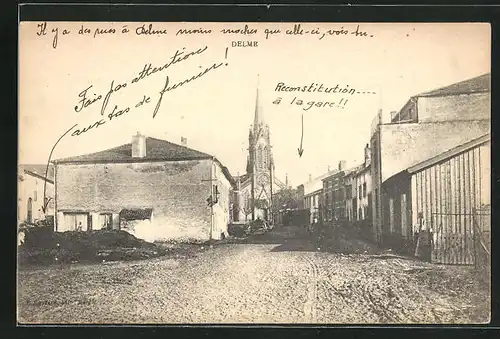 Il y a des rues à Delme moins moches que celle-ci, vois tu.
DELME
Fais pas attention
aux tas de fumier !
Reconstitution
à la gare !!